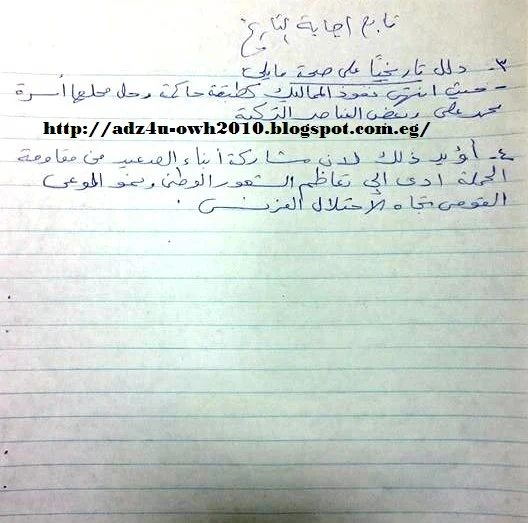 تابع إجابة التاريخ
٣- دلل تاريخيًا على صحة مايلى
- حيث انتهى نفوذ المماليك كطبقة حاكمة وحل محلها أسرة
محمد على وبعض العناصر التركية
http://adz4u-owh2010.blogspot.com.eg/
٤- أؤيد ذلك لان مشاركة أبناء الصعيد فى مقاومة
الحملة ادى الى تعاظم الشعور الوطنى ونمو الوعى
القومى تجاه الاحتلال الفرنسى .